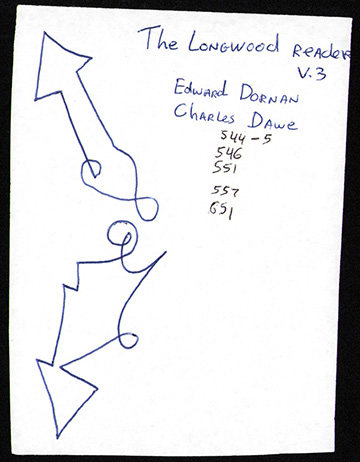 The Longwood Reader
V.3
Edward Dornan
Charles Dawe
544-5
546
551
557
651